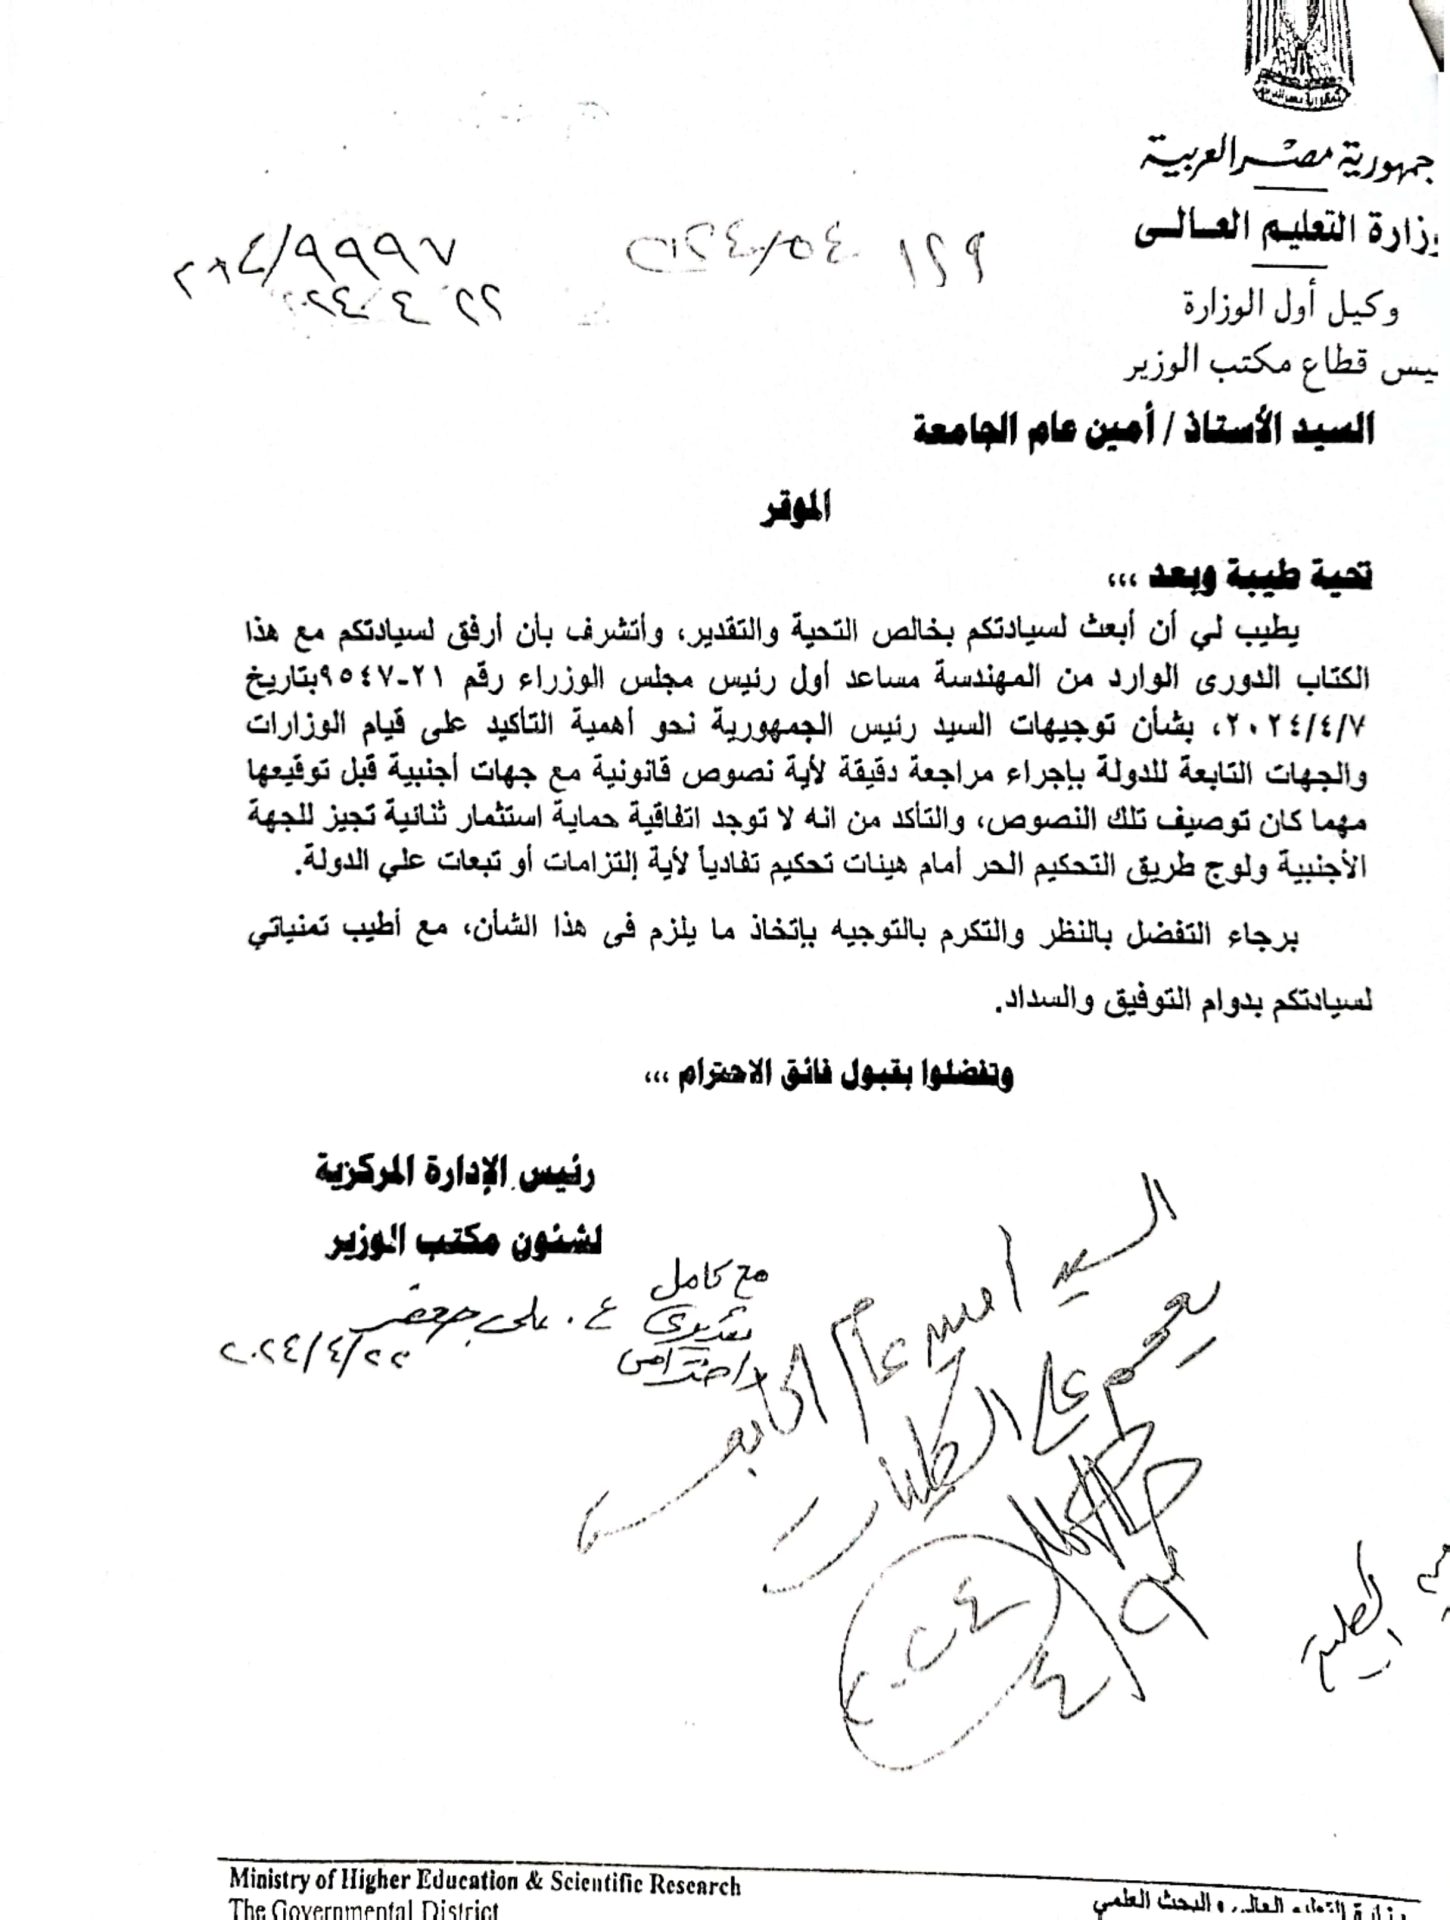 جمهورية مصر العربية
وزارة التعليم العالى
وكيل أول الوزارة
يس قطاع مكتب الوزير
٢٨٤/٩٩٩٧
٢٢ ٤ ٢٠٢٤
١٢٩
السيد الأستاذ / أمين عام الجامعة
الموقر
تحية طيبة وبعد ,,,
يطيب لي أن أبعث لسيادتكم بخالص التحية والتقدير، وأتشرف بأن أرفق لسيادتكم مع هذا
الكتاب الدورى الوارد من المهندسة مساعد أول رئيس مجلس الوزراء رقم ٢١-٩٥٤٧بتاريخ
٢٠٢٤/٤/٧، بشأن توجيهات السيد رئيس الجمهورية نحو أهمية التأكيد على قيام الوزارات
والجهات التابعة للدولة بإجراء مراجعة دقيقة لأية نصوص قانونية مع جهات أجنبية قبل توقيعها
مهما كان توصيف تلك النصوص، والتأكد من انه لا توجد اتفاقية حماية استثمار ثنائية تجيز للجهة
الأجنبية ولوج طريق التحكيم الحر أمام هيئات تحكيم تفادياً لأية إلتزامات أو تبعات علي الدولة.
برجاء التفضل بالنظر والتكرم بالتوجيه بإتخاذ ما يلزم فى هذا الشأن، مع أطيب تمنياتي
لسيادتكم بدوام التوفيق والسداد.
وتفضلوا بقبول فائق الاحترام ,,,
رئيس الإدارة المركزية
لشئون مكتب الوزير
مع كامل
تقديرى
واحترامى
٢٠٢٤/٤/٢٢
السيد امين عام الجامعة
يعمم على الكليات
٢٠٢٤
Ministry of Higher Education & Scientific Research
The Governmental District
وزارة التعليم العالى و البحث العلمي